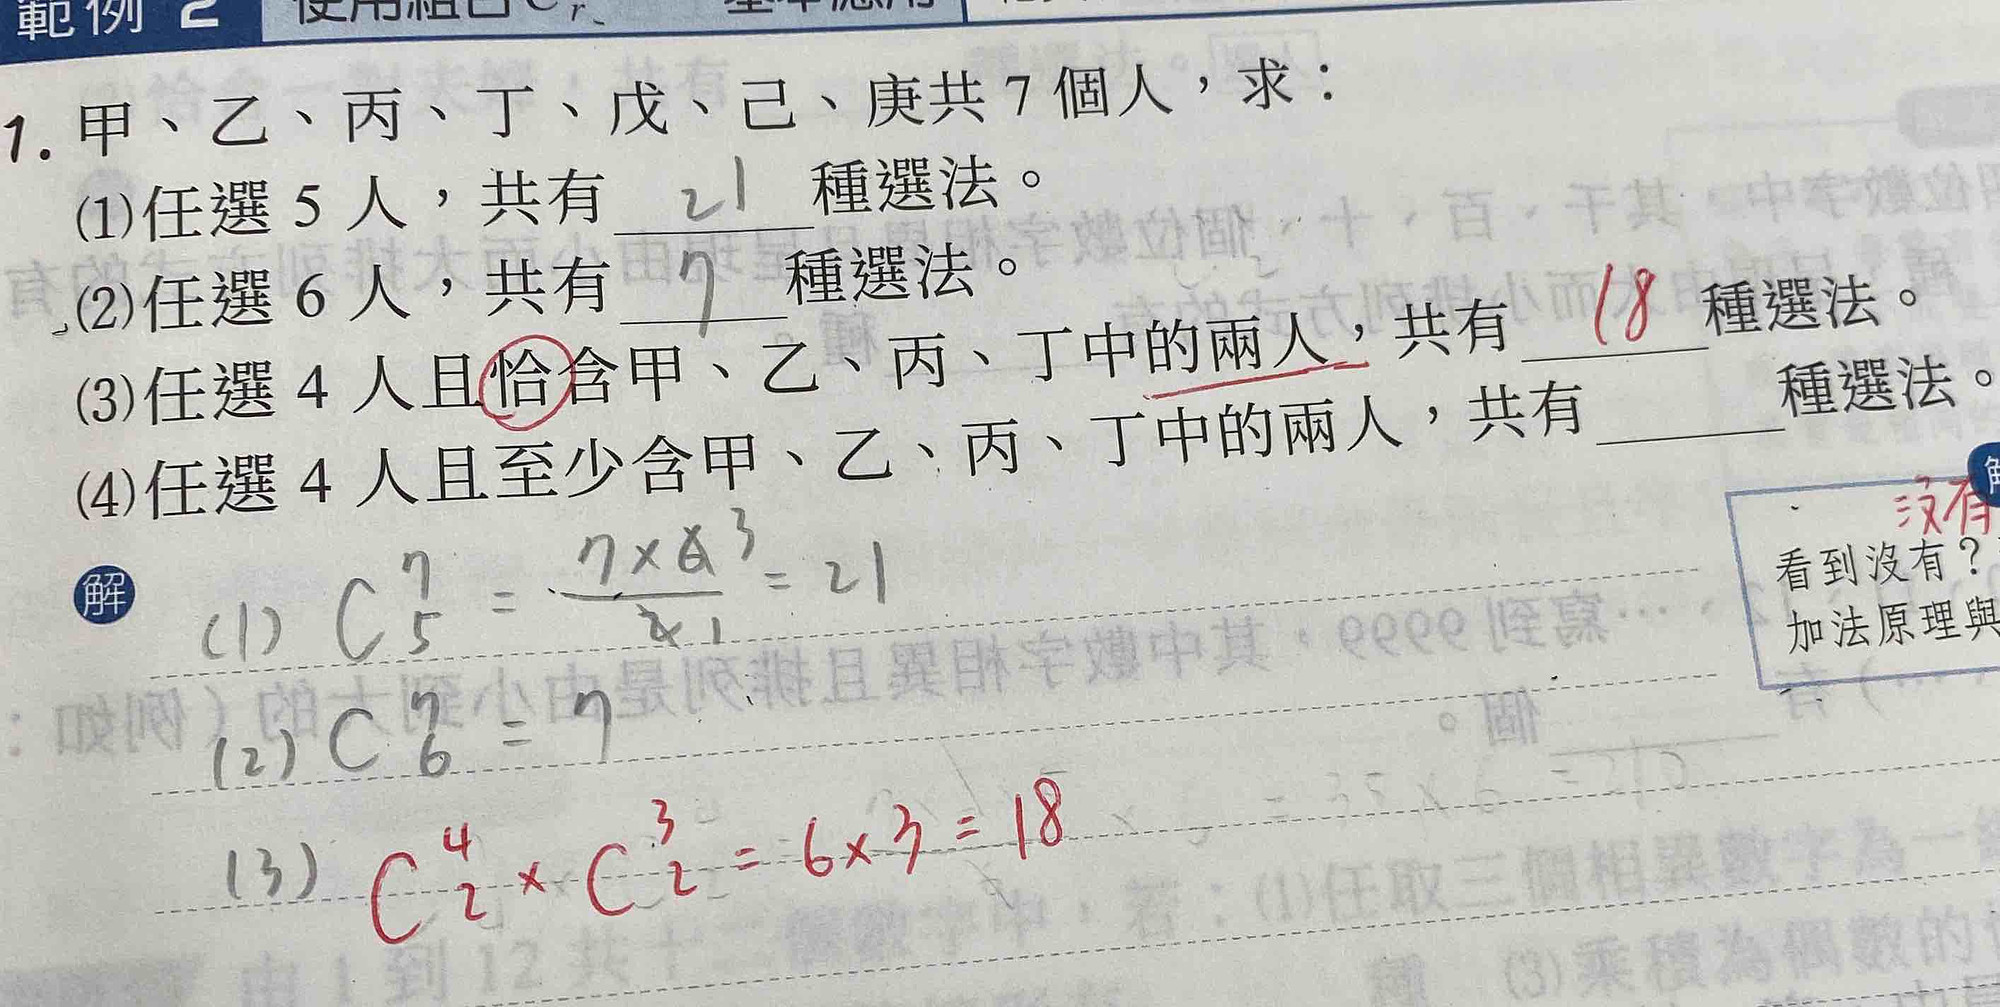 範例 2
1. 甲、乙、丙、丁、戊、己、庚共 7 個人，求：
(1)任選 5 人，共有 21 種選法。
(2)任選 6 人，共有 7 種選法。
(3)任選 4 人且恰含甲、乙、丙、丁中的兩人，共有 18 種選法。
(4)任選 4 人且至少含甲、乙、丙、丁中的兩人，共有____種選法。
沒有
看到沒有？
加法原理與
解
(1) C⁷₅ = 7×6 3 / 2 1 = 21
(2) C⁷₆ = 7
(3) C⁴₂ × C³₂ = 6×3 = 18